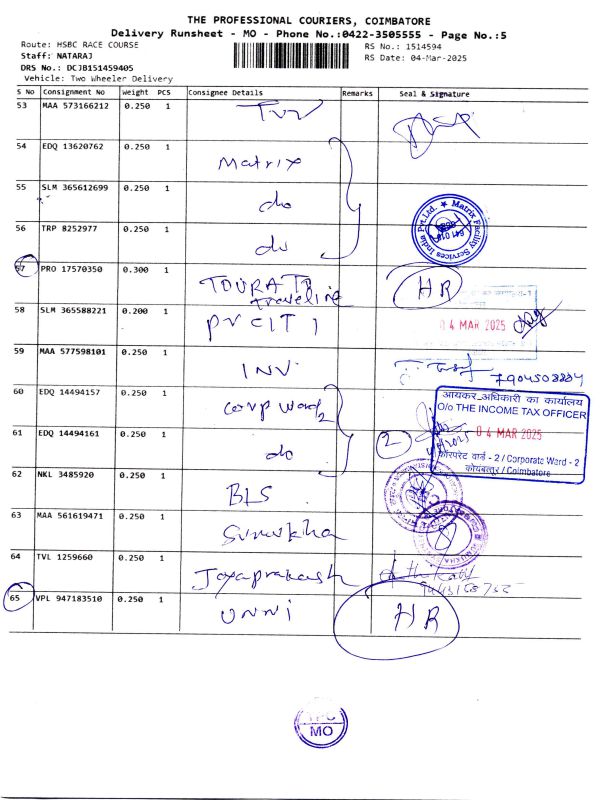 THE PROFESSIONAL COURIERS, COIMBATORE
Delivery Runsheet - MO - Phone No.:0422-3505555 - Page No.:5
Route: HSBC RACE COURSE
RS No.: 1514594
Staff: NATARAJ
RS Date: 04-Mar-2025
DRS No.: DCJB151459405
Vehicle: Two Wheeler Delivery
S No Consignment No Weight PCS Consignee Details Remarks Seal & Signature
53 MAA 573166212 0.250 1 TVV
54 EDQ 13620762 0.250 1 Matrix
55 SLM 365612699 0.250 1 do
56 TRP 8252977 0.250 1 do
Matrix Facility Services India Pvt.Ltd.
57 PRO 17570350 0.300 1 traveline HR
58 SLM 365588221 0.200 1 PVCIT 1
04 MAR 2025
59 MAA 577598101 0.250 1 INV
60 EDQ 14494157 0.250 1 Corp Ward 2
आयकर अधिकारी का कार्यालय
O/o THE INCOME TAX OFFICER
04 MAR 2025
कॉरपरेट वार्ड - 2 / Corporate Ward - 2
कोयम्बत्तूर / Coimbatore
61 EDQ 14494161 0.250 1 do 2
62 NKL 3485920 0.250 1 BLS
63 MAA 561619471 0.250 1
64 TVL 1259660 0.250 1 Jayaprakash
65 VPL 947183510 0.250 1 UNNI HR
MO